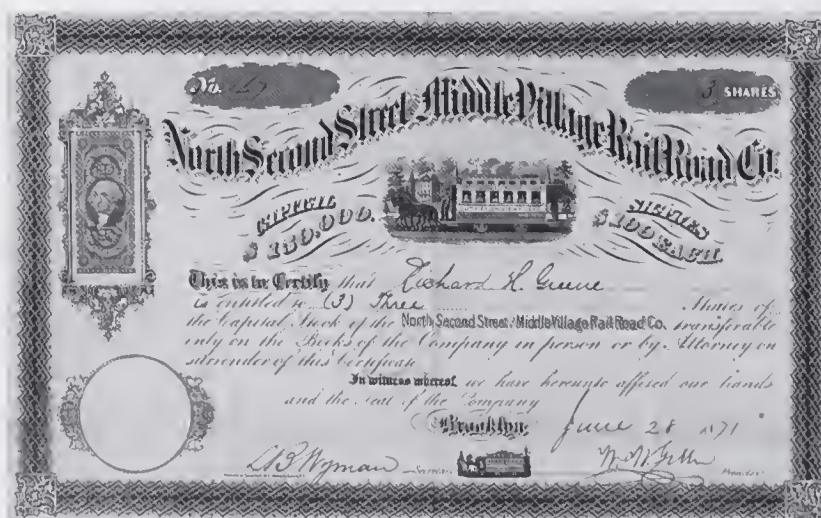 No.
3 SHARES
North Second Street Middle Village Rail Road Co.
CAPITAL
$ 150.000.
SHARES
$ 100 EACH.
This is to Certify that Richard H. Greene
is entitled to (3) Three Shares of
the Capital Stock of the North Second Street Middle Village Rail Road Co. transferable
only on the Books of the Company in person or by Attorney on
surrender of this Certificate
In witness whereof, we have hereunto affixed our hands
and the Seal of the Company
Brooklyn, June 28 1871
A B Wyman